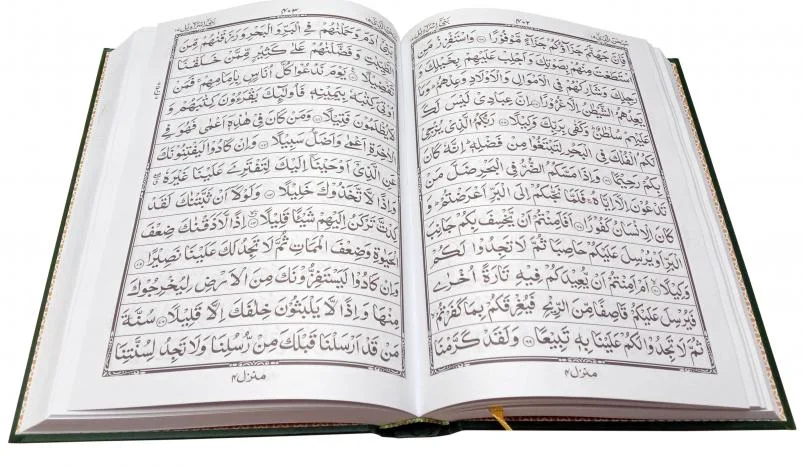 ۴۰۲
فَاِنَّ جَهَنَّمَ جَزَآؤُكُمْ جَزَآءً مَّوْفُوْرًا ۝ وَاسْتَفْزِزْ مَنِ
اسْتَطَعْتَ مِنْهُمْ بِصَوْتِكَ وَاَجْلِبْ عَلَيْهِمْ بِخَيْلِكَ وَ
رَجِلِكَ وَشَارِكْهُمْ فِى الْاَمْوَالِ وَالْاَوْلَادِ وَعِدْهُمْ ؕ وَمَا
يَعِدُهُمُ الشَّيْطٰنُ اِلَّا غُرُوْرًا ۝ اِنَّ عِبَادِىْ لَيْسَ لَكَ
عَلَيْهِمْ سُلْطٰنٌ ؕ وَكَفٰى بِرَبِّكَ وَكِيْلًا ۝ رَبُّكُمُ الَّذِىْ يُزْجِىْ
لَكُمُ الْفُلْكَ فِى الْبَحْرِ لِتَبْتَغُوْا مِنْ فَضْلِهٖ ؕ اِنَّهٗ كَانَ
بِكُمْ رَحِيْمًا ۝ وَاِذَا مَسَّكُمُ الضُّرُّ فِى الْبَحْرِ ضَلَّ مَنْ
تَدْعُوْنَ اِلَّاۤ اِيَّاهُ ۚ فَلَمَّا نَجّٰٮكُمْ اِلَى الْبَرِّ اَعْرَضْتُمْ ؕ وَ
كَانَ الْاِنْسَانُ كَفُوْرًا ۝ اَفَاَمِنْتُمْ اَنْ يَّخْسِفَ بِكُمْ جَانِبَ
الْبَرِّ اَوْ يُرْسِلَ عَلَيْكُمْ حَاصِبًا ثُمَّ لَا تَجِدُوْا لَكُمْ
وَكِيْلًا ۝ اَمْ اَمِنْتُمْ اَنْ يُّعِيْدَكُمْ فِيْهِ تَارَةً اُخْرٰى
فَيُرْسِلَ عَلَيْكُمْ قَاصِفًا مِّنَ الرِّيْحِ فَيُغْرِقَكُمْ بِمَا كَفَرْتُمْ ۙ
ثُمَّ لَا تَجِدُوْا لَكُمْ عَلَيْنَا بِهٖ تَبِيْعًا ۝ وَلَقَدْ كَرَّمْنَا
منزل ۴
۴۰۳
بَنِىْۤ اٰدَمَ وَحَمَلْنٰهُمْ فِى الْبَرِّ وَالْبَحْرِ وَرَزَقْنٰهُمْ مِّنَ
الطَّيِّبٰتِ وَفَضَّلْنٰهُمْ عَلٰى كَثِيْرٍ مِّمَّنْ خَلَقْنَا
تَفْضِيْلًا ۝ يَوْمَ نَدْعُوْا كُلَّ اُنَاسٍۭ بِاِمَامِهِمْ ۚ فَمَنْ
اُوْتِىَ كِتٰبَهٗ بِيَمِيْنِهٖ فَاُولٰٓئِكَ يَقْرَءُوْنَ كِتٰبَهُمْ وَ
لَا يُظْلَمُوْنَ فَتِيْلًا ۝ وَمَنْ كَانَ فِىْ هٰذِهٖۤ اَعْمٰى فَهُوَ فِى
الْاٰخِرَةِ اَعْمٰى وَاَضَلُّ سَبِيْلًا ۝ وَاِنْ كَادُوْا لَيَفْتِنُوْنَكَ
عَنِ الَّذِىْۤ اَوْحَيْنَاۤ اِلَيْكَ لِتَفْتَرِىَ عَلَيْنَا غَيْرَهٗ ۖ
وَاِذًا لَّاتَّخَذُوْكَ خَلِيْلًا ۝ وَلَوْلَاۤ اَنْ ثَبَّتْنٰكَ لَقَدْ
كِدْتَّ تَرْكَنُ اِلَيْهِمْ شَيْئًا قَلِيْلًا ۝ اِذًا لَّاَذَقْنٰكَ ضِعْفَ
الْحَيٰوةِ وَضِعْفَ الْمَمَاتِ ثُمَّ لَا تَجِدُ لَكَ عَلَيْنَا نَصِيْرًا ۝
وَاِنْ كَادُوْا لَيَسْتَفِزُّوْنَكَ مِنَ الْاَرْضِ لِيُخْرِجُوْكَ
مِنْهَا وَاِذًا لَّا يَلْبَثُوْنَ خِلٰفَكَ اِلَّا قَلِيْلًا ۝ سُنَّةَ
مَنْ قَدْ اَرْسَلْنَا قَبْلَكَ مِنْ رُّسُلِنَا وَلَا تَجِدُ لِسُنَّتِنَا
منزل ۴